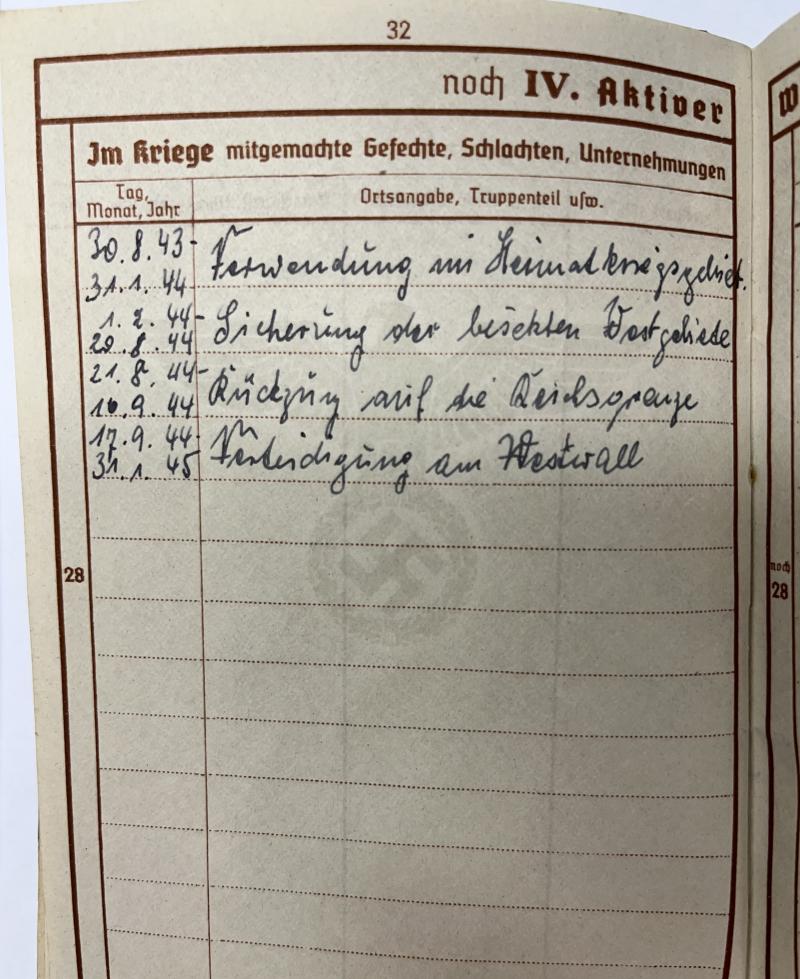 32
noch IV. Aktiver
W
Im Kriege mitgemachte Gefechte, Schlachten, Unternehmungen
Tag, Monat, Jahr
Ortsangabe, Truppenteil usw.
30.8.43-
31.1.44 Verwendung im Heimatkriegsgebiet.
1.2.44-
20.8.44 Sicherung der besetzten Westgebiete
21.8.44-
16.9.44 Rückzug auf die Reichsgrenze
17.9.44-
31.1.45 Verteidigung am Westwall
28
noch
28